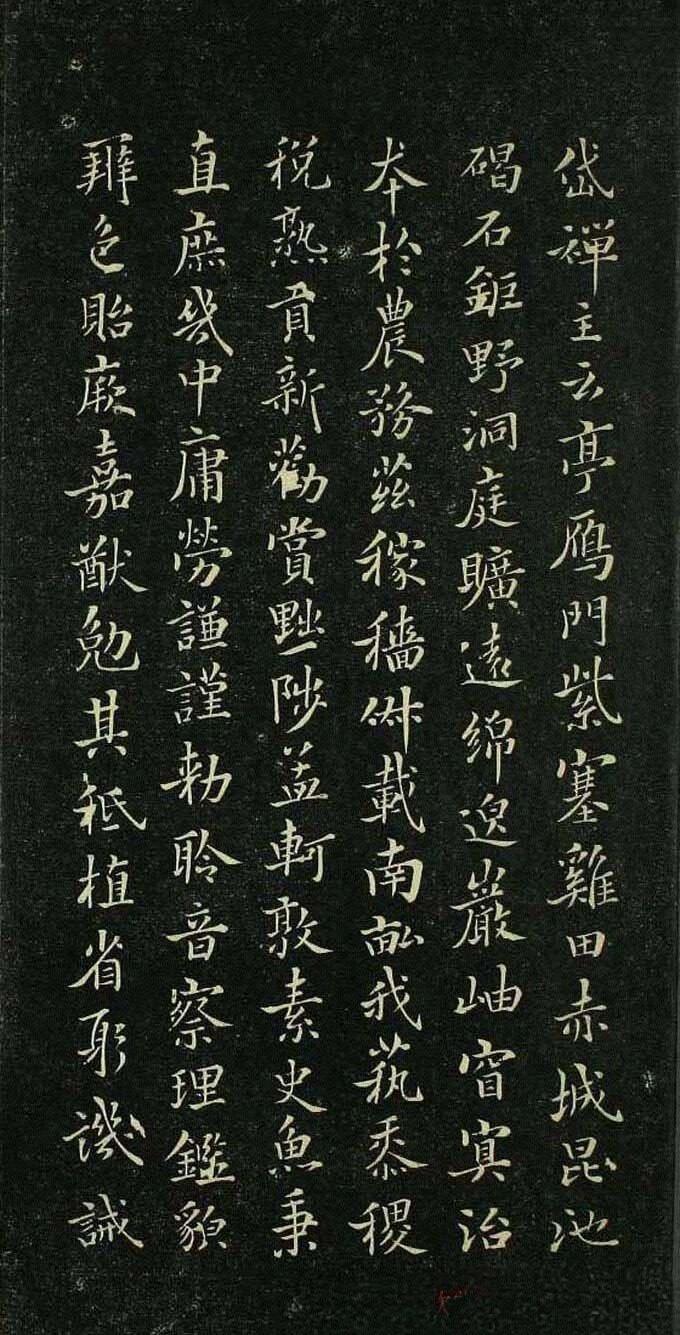 岱禪主云亭鴈門紫塞雞田赤城昆池
碣石鉅野洞庭曠遠綿邈巖岫窅冥治
本於農務茲稼穡俶載南畝我蓺黍稷
稅熟貢新勸賞黜陟孟軻敦素史魚秉
直庶幾中庸勞謙謹勑聆音察理鑑貌
辨色貽厥嘉猷勉其祗植省躬譏誡